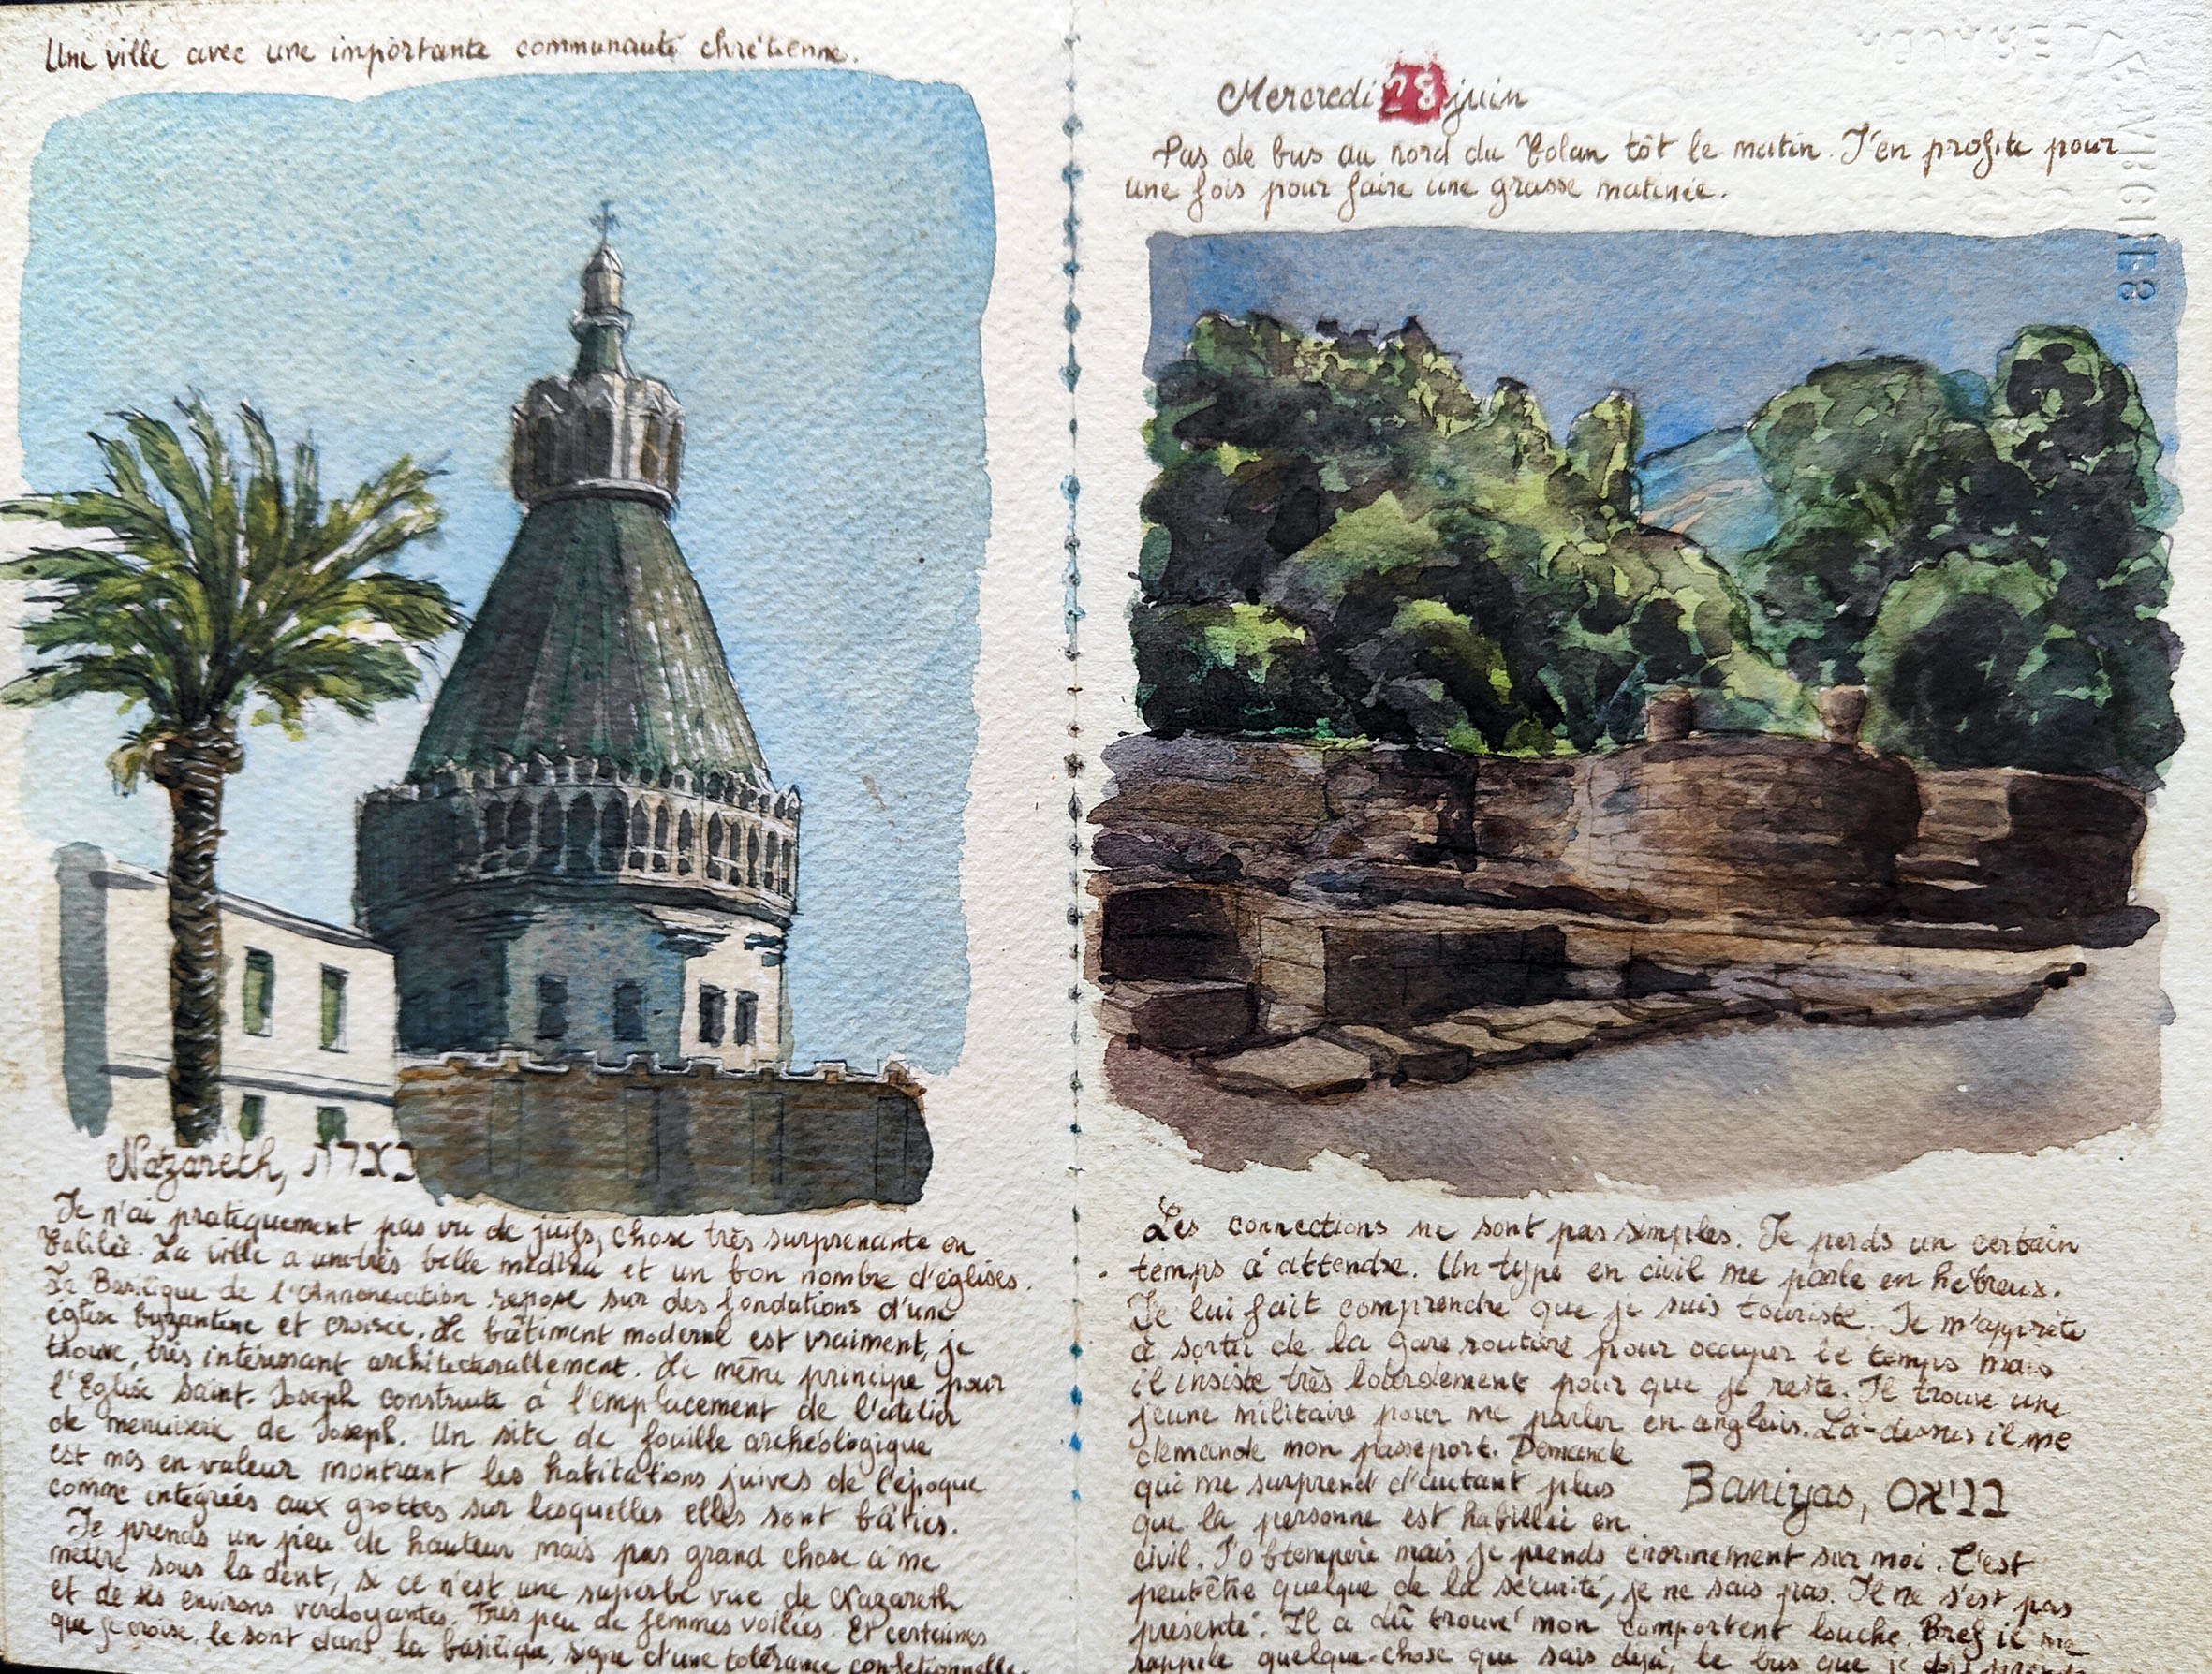 Une ville avec une importante communauté chrétienne.
Nazareth, נצרת
Je n'ai pratiquement pas vu de juifs, chose très surprenante en
Galilée. La ville a une très belle médina et un bon nombre d'églises.
La Basilique de l'Annonciation repose sur des fondations d'une
église byzantine et croisée. Le bâtiment moderne est vraiment, je
trouve, très intéressant architecturallement. Le même principe pour
l'Eglise Saint-Joseph construite à l'emplacement de l'atelier
de menuiserie de Joseph. Un site de fouille archéologique
est mis en valeur montrant les habitations juives de l'époque
comme intégrées aux grottes sur lesquelles elles sont bâties.
Je prends un peu de hauteur mais pas grand chose à me
mettre sous la dent, si ce n'est une superbe vue de Nazareth
et de ses environs verdoyantes. Très peu de femmes voilées. Et certaines
que je croise, le sont dans la basilique, signe d'une tolérance confessionnelle.
Mercredi 28 juin
Pas de bus au nord du Golan tôt le matin. J'en profite pour
une fois pour faire une grasse matinée.
Les connections ne sont pas simples. Je perds un certain
temps à attendre. Un type en civil me parle en hébreux.
Je lui fait comprendre que je suis touriste. Je m'apprête
à sortir de la gare routière pour occuper le temps mais
il insiste très lourdement pour que je reste. Il trouve une
jeune militaire pour me parler en anglais. Là-dessus il me
demande mon passeport. Demande
qui me surprend d'autant plus
que la personne est habillée en
Baniyas, בניאס
civil. J'obtempère mais je prends énormément sur moi. C'est
peut-être quelque de la sécurité, je ne sais pas. Il ne s'est pas
présenté. Il a dû trouvé mon comportent louche. Bref il me
rappele quelque-chose que sais déjà, le bus que je dois prendre